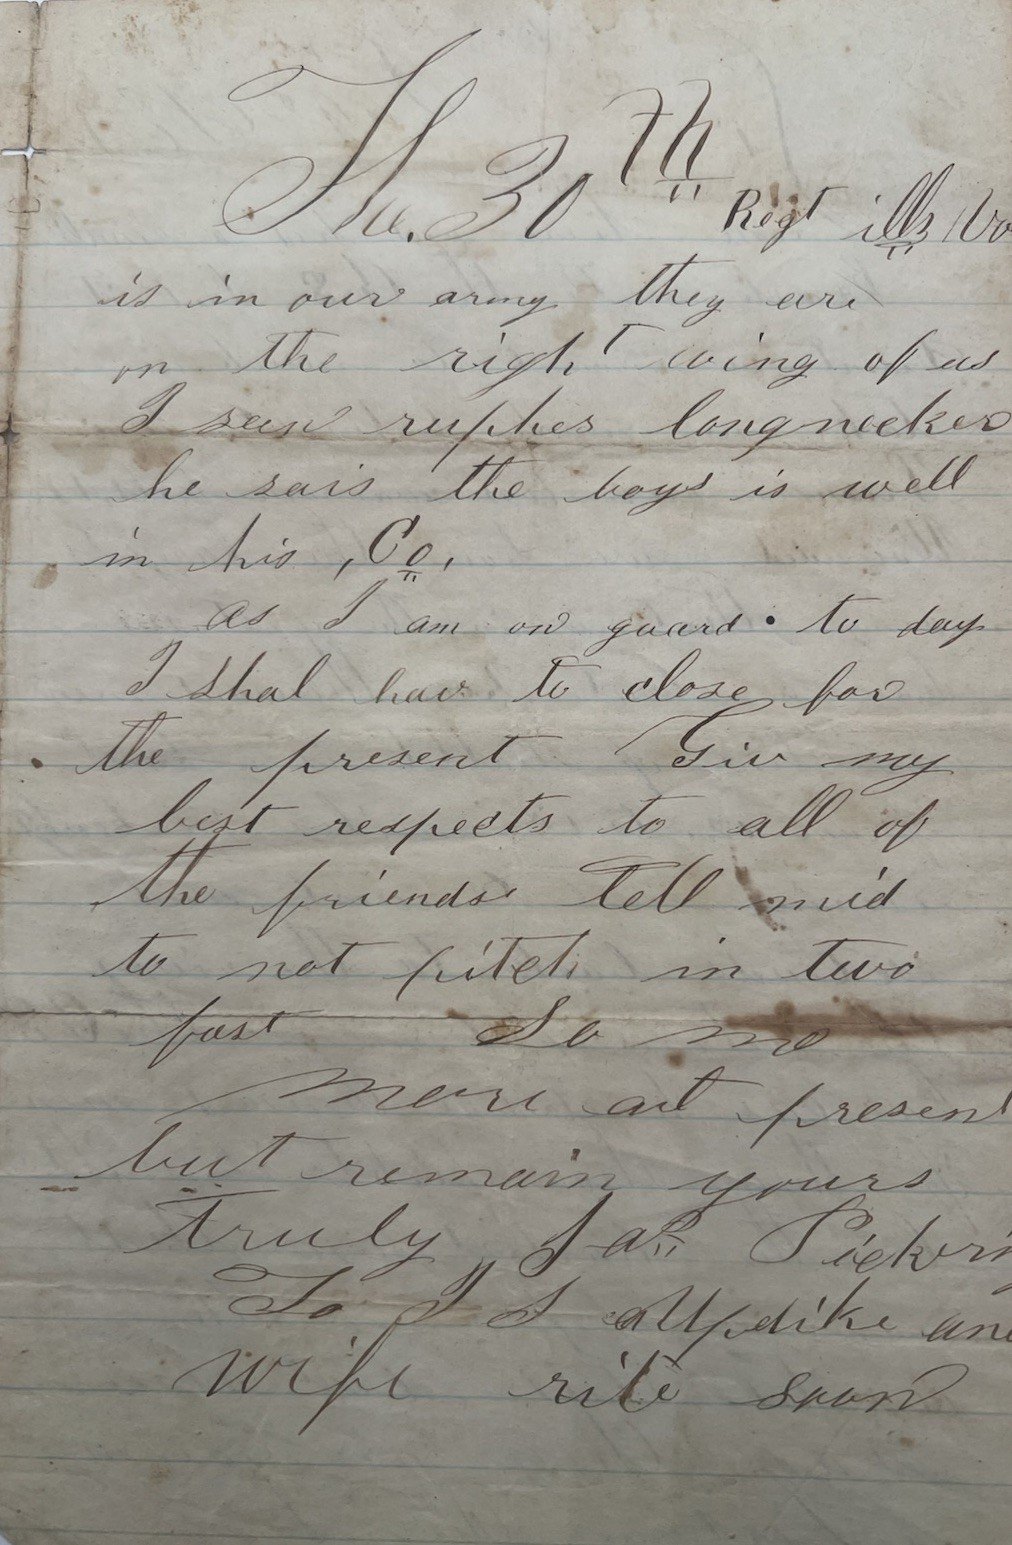 The. 30th Regt ills Vo
is in our army they are
on the right wing of us
I seen ruphes longnecker
he sais the boys is well
in his , Co,
as I am on guard to day
I shal hav to close for
the present Giv my
best respects to all of
the friends tell mid
to not pitch in two
fast So no
more at present
but remain yours
truly Jas Pickerin
To J S Updike and
wife rite soon